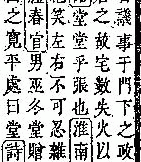 議事于門下之政
君之故宅數失火以
堂堂乎張也淮南
笑左右不可忍雜
禮春官男巫冬堂贈
山之寬平處曰堂詩